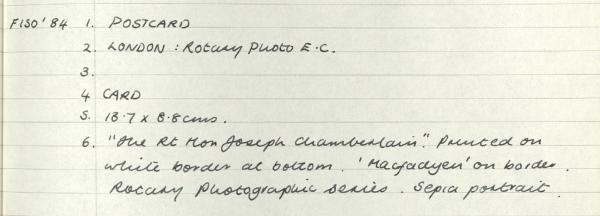 F150'84 1. POSTCARD
2. LONDON : Rotary Photo E.C.
3.
4 CARD
5. 13.7 x 8.8cms.
6. "The Rt Hon Joseph Chamberlain". Printed on
white border at bottom. 'Macfadyen' on border.
Rotary Photographic series. Sepia portrait